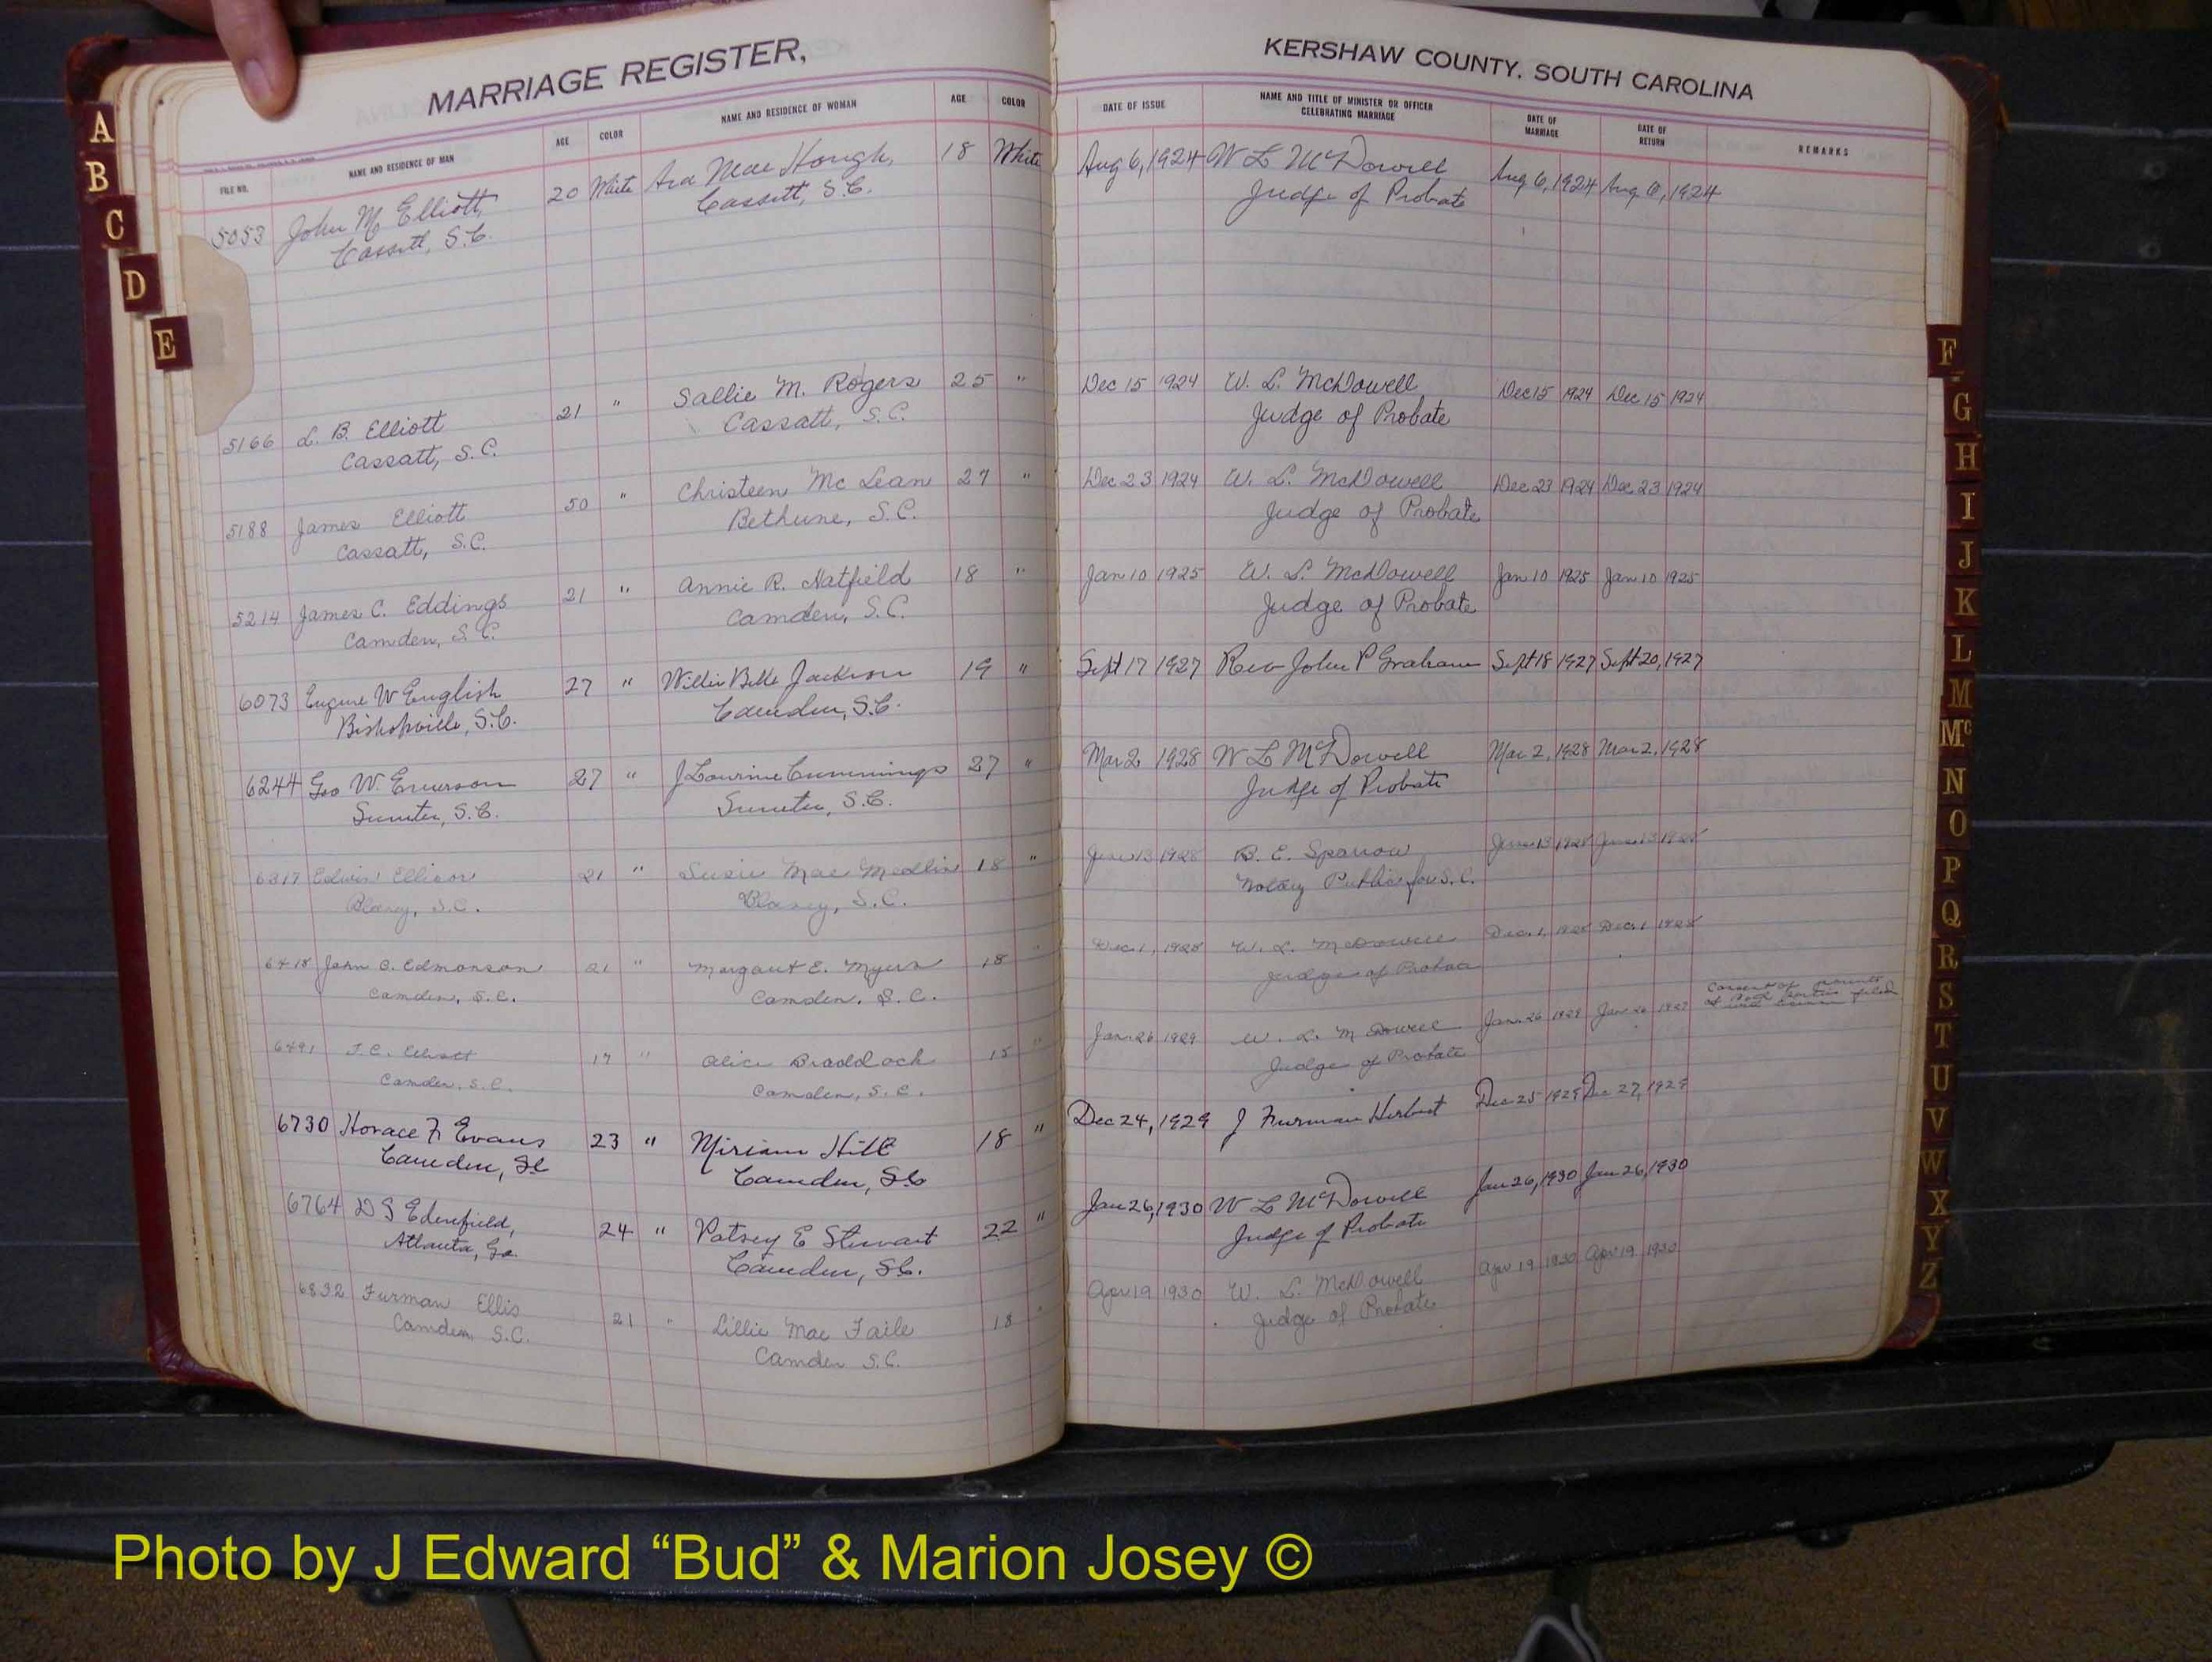 MARRIAGE REGISTER,
FILE NO. NAME AND RESIDENCE OF MAN AGE COLOR NAME AND RESIDENCE OF WOMAN AGE COLOR
5053 John M Elliott, 20 White Ara Mae Hough, 18 White
Cassatt, S.C. Cassatt, S.C.
5166 L. B. Elliott 21 " Sallie M. Rogers 25 "
Cassatt, S.C. Cassatt, S.C.
5188 James Elliott 50 " Christeen McLean 27 "
Cassatt, S.C. Bethune, S.C.
5214 James C. Eddings 21 " Annie R. Hatfield 18 "
Camden, S.C. Camden, S.C.
6073 Eugene W English 27 " Willie Belle Jackson 19 "
Bishopville, S.C. Camden, S.C.
6244 Geo W. Emerson 27 " J Lourine Cummings 27 "
Sumter, S.C. Sumter, S.C.
6317 Edwin Ellison 21 " Susie Mae Medlin 18 "
Blaney, S.C. Blaney, S.C.
6418 John C. Edmonson 21 " Margaret E. Myers 18 "
Camden, S.C. Camden, S.C.
6491 J. C. Elliott 17 " Alice Braddock 15 "
Camden, S.C. Camden, S.C.
6730 Horace F Evans 23 " Miriam Hill 18 "
Camden, SC Camden, SC
6764 D S Edenfield, 24 " Patsey E Stewart 22 "
Atlanta, Ga. Camden, SC.
6832 Furman Ellis 21 " Lillie Mae Faile 18 "
Camden, S.C. Camden S.C.
KERSHAW COUNTY, SOUTH CAROLINA
DATE OF ISSUE NAME AND TITLE OF MINISTER OR OFFICER CELEBRATING MARRIAGE DATE OF MARRIAGE DATE OF RETURN REMARKS
Aug 6, 1924 W L McDowell Aug 6, 1924 Aug 6, 1924
Judge of Probate
Dec 15 1924 W. L. McDowell Dec 15 1924 Dec 15 1924
Judge of Probate
Dec 23 1924 W. L. McDowell Dec 23 1924 Dec 23 1924
Judge of Probate
Jan 10 1925 W. L. McDowell Jan 10 1925 Jan 10 1925
Judge of Probate
Sept 17 1927 Rev John P Graham Sept 18 1927 Sept 20, 1927
Mar 2 1928 W L McDowell Mar 2, 1928 Mar 2, 1928
Judge of Probate
June 13 1928 B. E. Sparrow June 13 1928 June 13 1928
Notary Public for S.C.
Dec. 1, 1928 W. L. McDowell Dec. 1, 1928 Dec. 1 1928
Judge of Probate
Consent of parents
of both parties filed
with license
Jan. 26 1929 W. L. McDowell Jan. 26 1929 Jan 26 1929
Judge of Probate
Dec 24, 1929 J Furman Herbert Dec 25 1929 Dec 27, 1929
Jan 26, 1930 W L McDowell Jan 26, 1930 Jan 26, 1930
Judge of Probate
Apr 19 1930 W. L. McDowell Apr 19 1930 Apr 19 1930
Judge of Probate
A
B
C
D
E
F
G
H
I
J
K
L
M
Mc
N
O
P
Q
R
S
T
U
V
W
X
Y
Z
Photo by J Edward “Bud” & Marion Josey ©